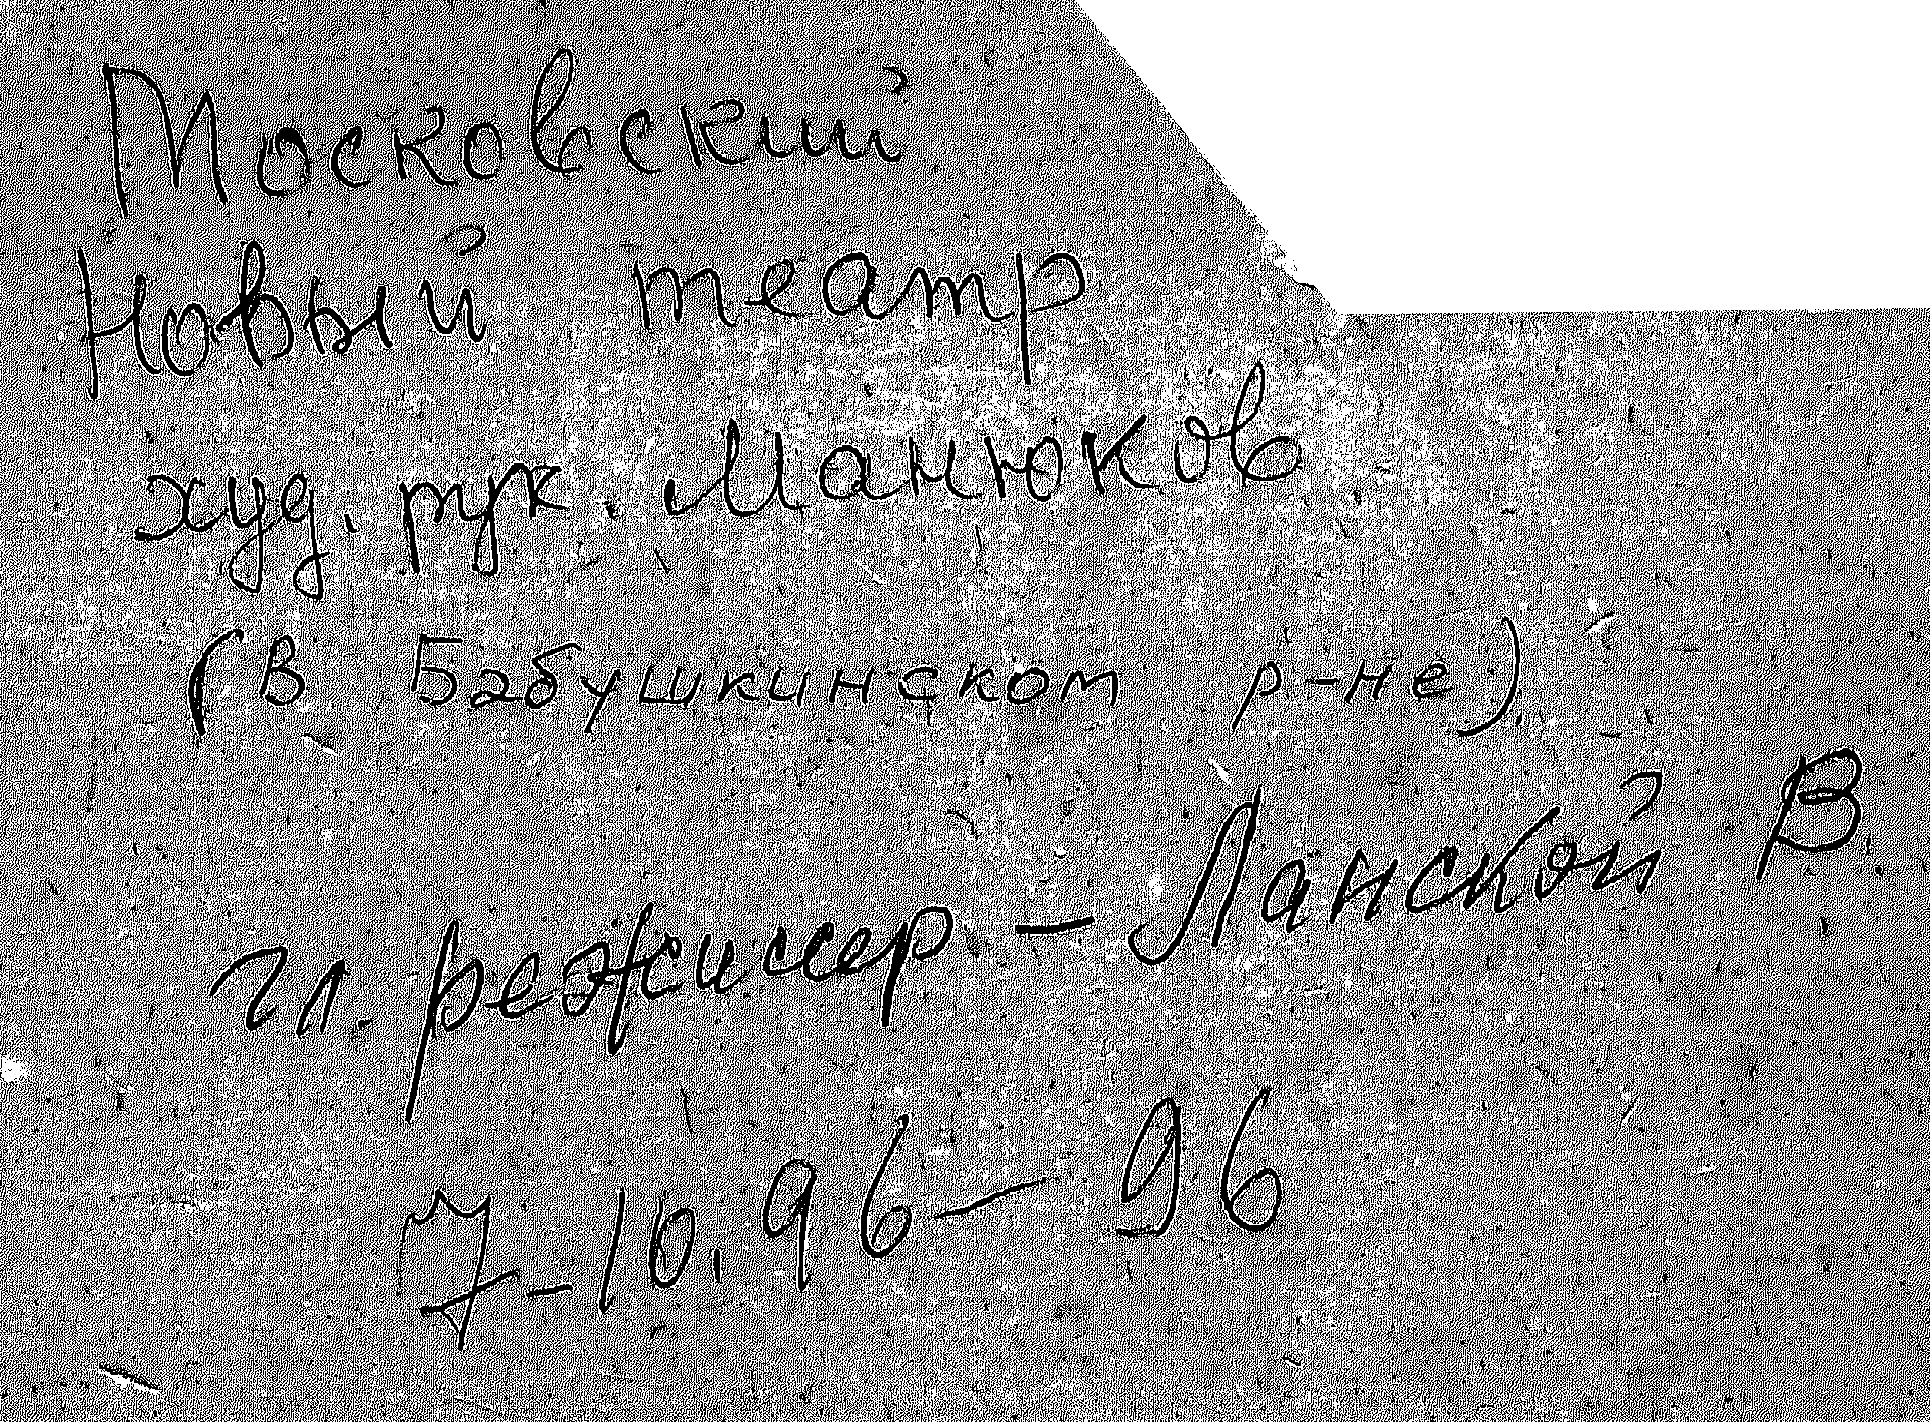 Московский
Новый театр
худ. рук. Манюков
(в Бабушкинском р-не).
гл. режиссер – Ланской В.
7-10.96 – 96